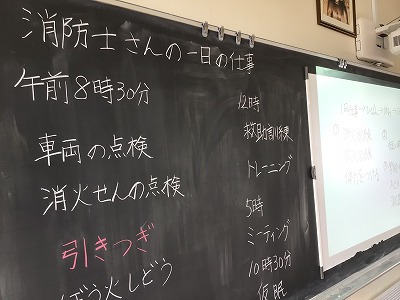 消防士さんの一日の仕事
午前8時30分
車両の点検
消火せんの点検
引きつぎ
ぼう火しどう
12時
救助訓練
トレーニング
5時
ミーティング
10時30分
仮眠